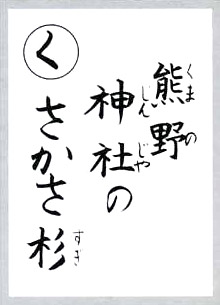 く
熊野
くまの
神社の
しんじゃ
さかさ杉
すぎ